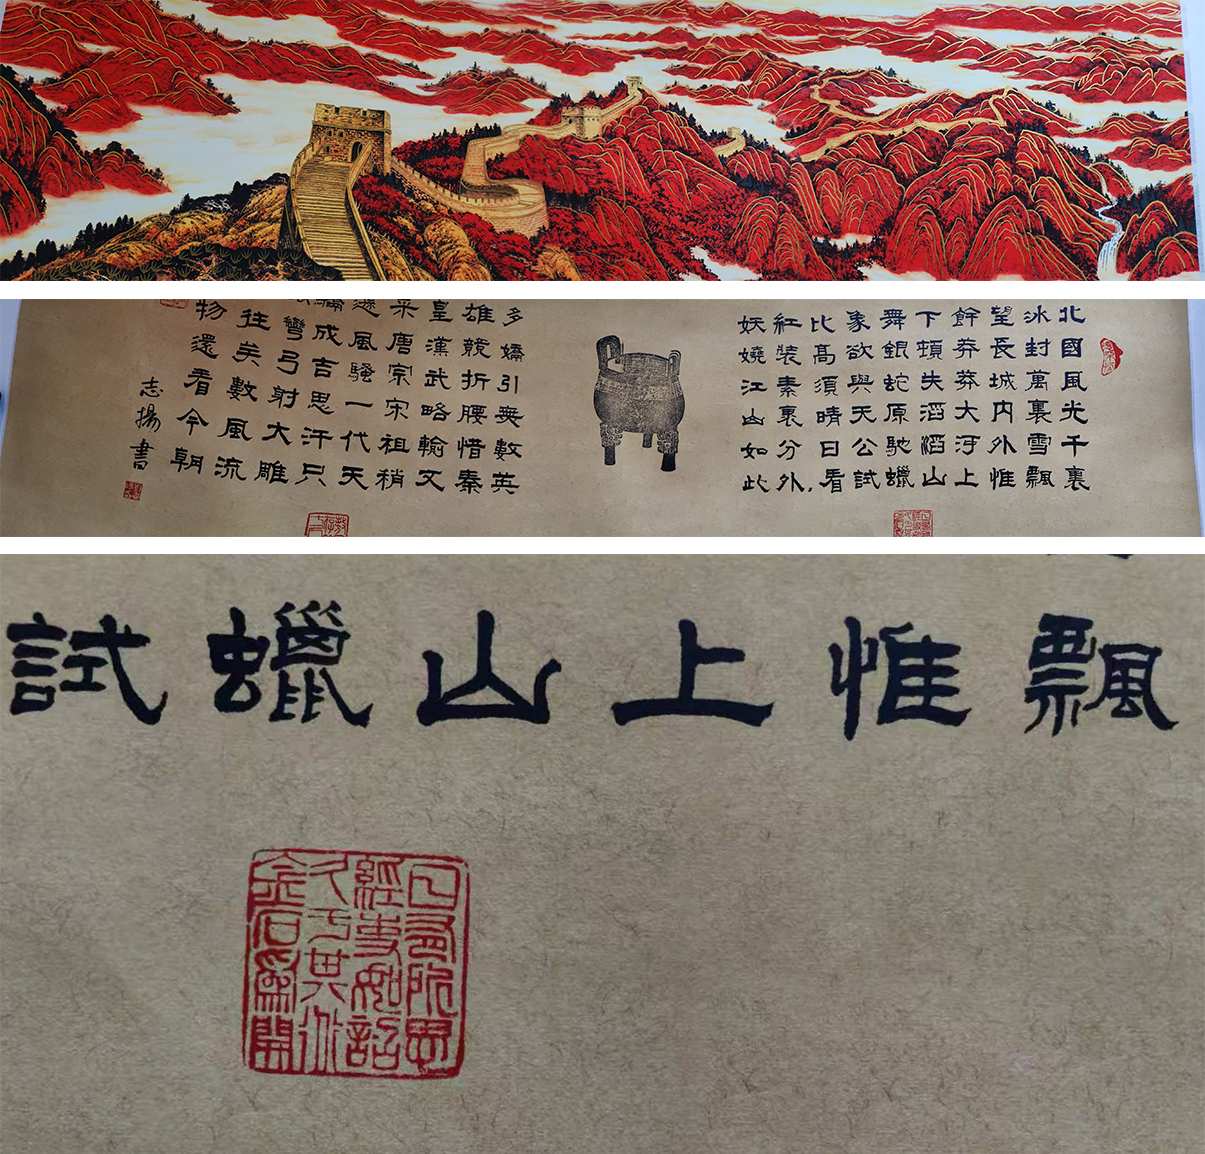 北國風光千裏
冰封萬裏雪飄
望長城内外惟
餘莽莽大河上
下頓失滔滔山
舞銀蛇原馳蠟
象欲與天公試
比高須晴日看
紅裝素裹分外
妖嬈江山如此
多嬌引無數英
雄競折腰惜秦
皇漢武略輸文
采唐宗宋祖稍
遜風騷一代天
驕成吉思汗只
彎弓射大雕
往矣數風流
物還看今朝
志揚書
飄
惟
上
山
蠟
試